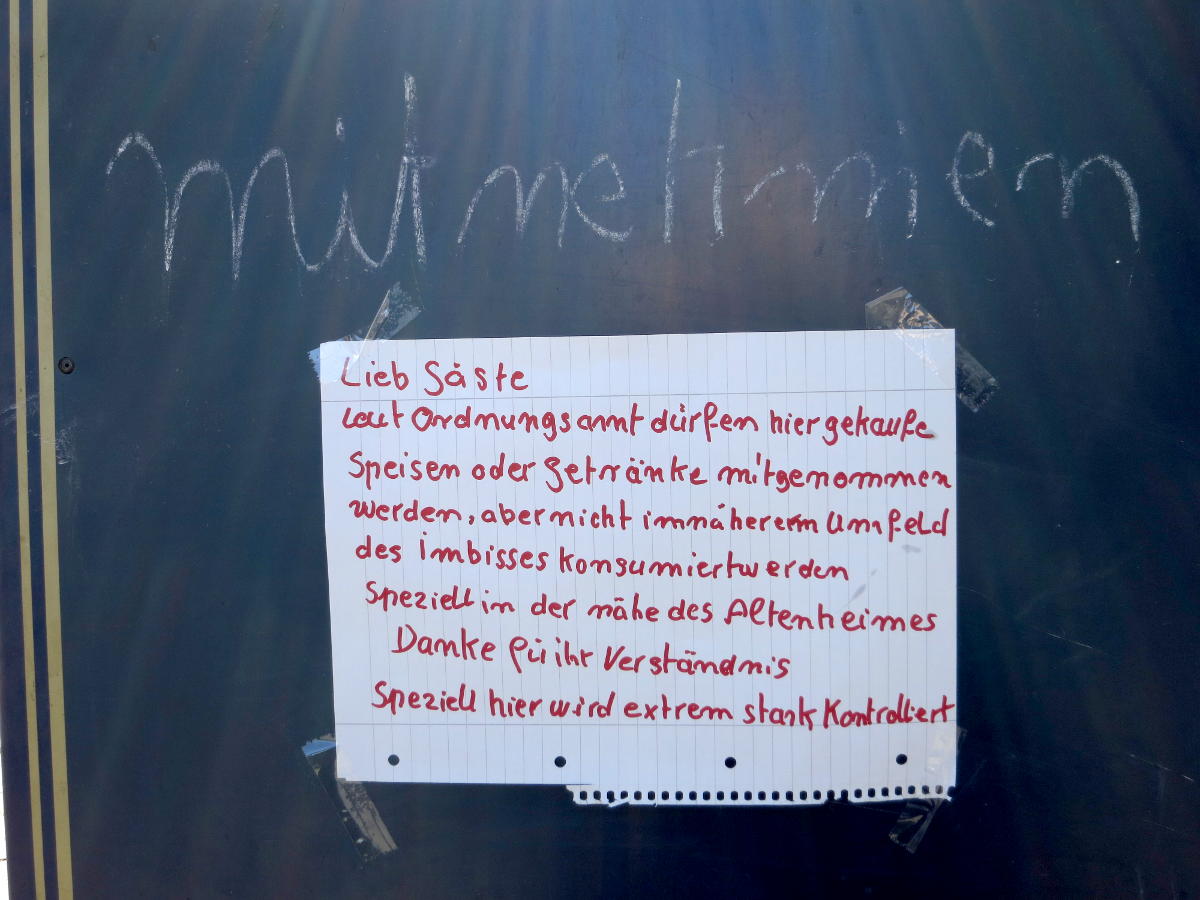 mitnehmen
Lieb Gäste
laut Ordnungsamt dürfen hier gekaufe
Speisen oder Getränke mitgenommen
werden, aber nicht im näherem Umfeld
des Imbisses Konsumiert werden
Speziell in der nähe des Altenheimes
Danke für ihr Verständnis
Speziell hier wird extrem stark Kontrolliert